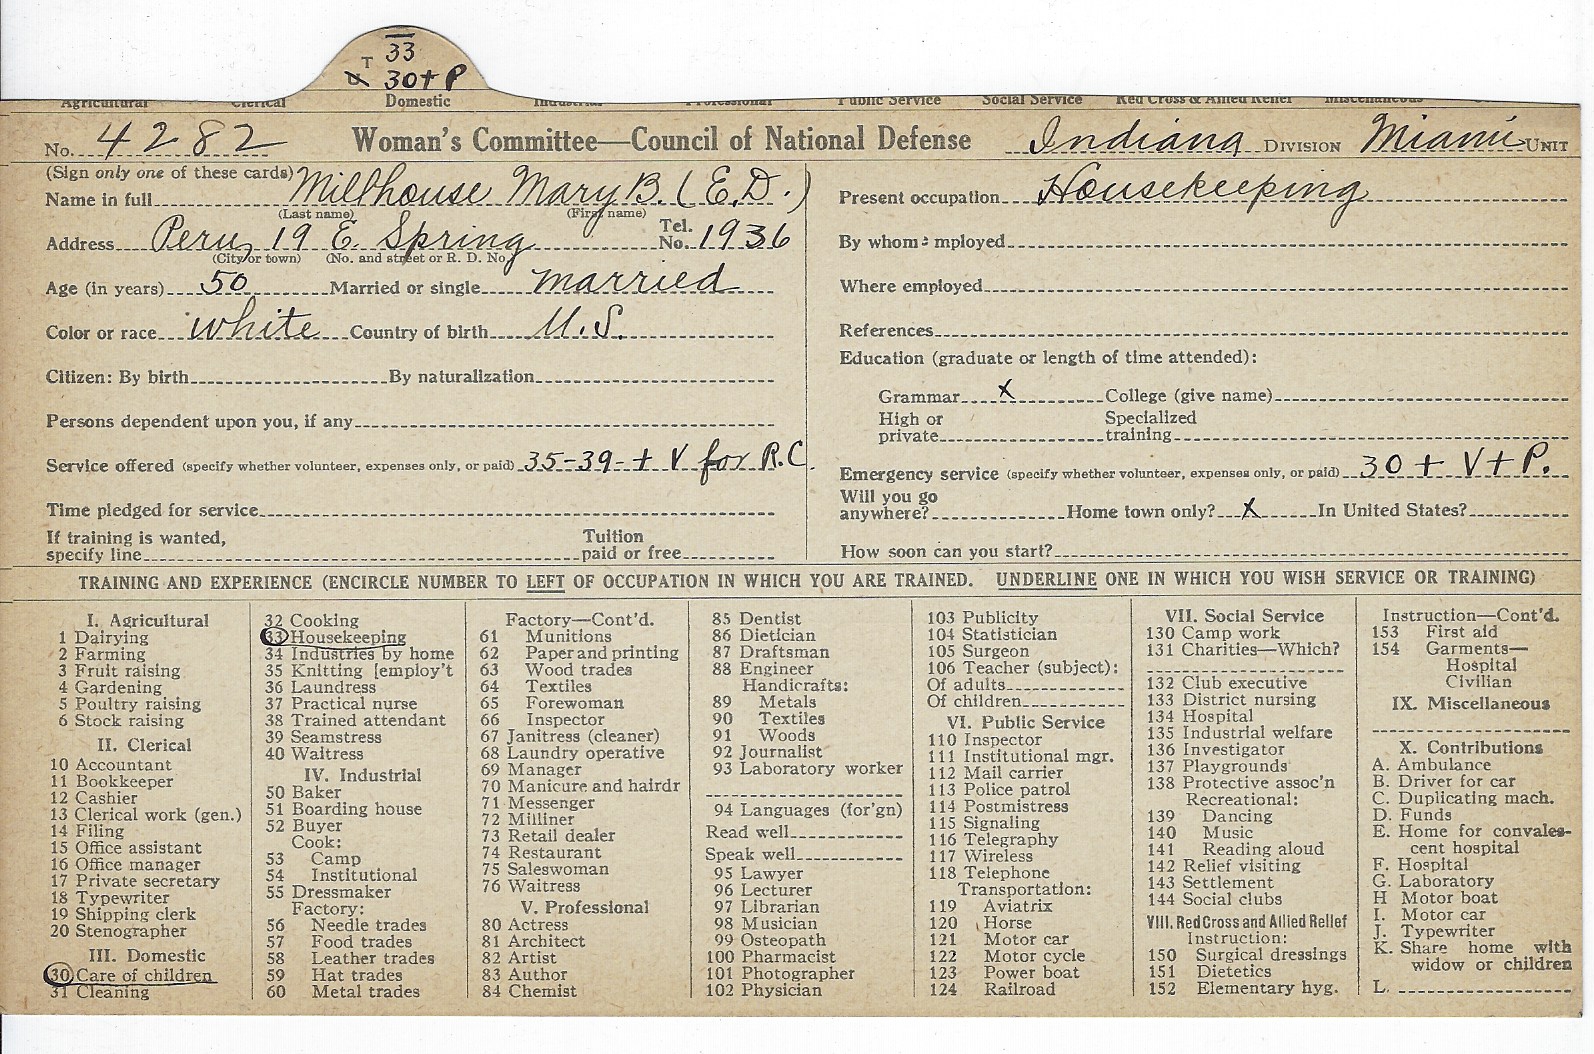 33
T
30 + P
Agricultural Clerical Domestic Industrial Professional Public Service Social Service Red Cross & Allied Relief Miscellaneous
No. 4282 Woman's Committee—Council of National Defense Indiana DIVISION Miami UNIT
(Sign only one of these cards)
Name in full Millhouse Mary B. (E.D.)
(Last name) (First name)
Address Peru, 19 E. Spring Tel. No. 1936
(City or town) (No. and street or R. D. No.)
Age (in years) 50 Married or single married
Color or race white Country of birth U.S.
Citizen: By birth By naturalization
Persons dependent upon you, if any
Service offered (specify whether volunteer, expenses only, or paid) 35-39-+ V for R.C.
Time pledged for service
If training is wanted, specify line Tuition paid or free
Present occupation Housekeeping
By whom mployed
Where employed
References
Education (graduate or length of time attended):
Grammar X College (give name)
High or private Specialized training
Emergency service (specify whether volunteer, expenses only, or paid) 30 + V + P.
Will you go anywhere? Home town only? X In United States?
How soon can you start?
TRAINING AND EXPERIENCE (ENCIRCLE NUMBER TO LEFT OF OCCUPATION IN WHICH YOU ARE TRAINED. UNDERLINE ONE IN WHICH YOU WISH SERVICE OR TRAINING)
I. Agricultural
1 Dairying
2 Farming
3 Fruit raising
4 Gardening
5 Poultry raising
6 Stock raising
II. Clerical
10 Accountant
11 Bookkeeper
12 Cashier
13 Clerical work (gen.)
14 Filing
15 Office assistant
16 Office manager
17 Private secretary
18 Typewriter
19 Shipping clerk
20 Stenographer
III. Domestic
30 Care of children
31 Cleaning
32 Cooking
33 Housekeeping
34 Industries by home
35 Knitting [employ't
36 Laundress
37 Practical nurse
38 Trained attendant
39 Seamstress
40 Waitress
IV. Industrial
50 Baker
51 Boarding house
52 Buyer
Cook:
53 Camp
54 Institutional
55 Dressmaker
Factory:
56 Needle trades
57 Food trades
58 Leather trades
59 Hat trades
60 Metal trades
Factory—Cont'd.
61 Munitions
62 Paper and printing
63 Wood trades
64 Textiles
65 Forewoman
66 Inspector
67 Janitress (cleaner)
68 Laundry operative
69 Manager
70 Manicure and hairdr
71 Messenger
72 Milliner
73 Retail dealer
74 Restaurant
75 Saleswoman
76 Waitress
V. Professional
80 Actress
81 Architect
82 Artist
83 Author
84 Chemist
85 Dentist
86 Dietician
87 Draftsman
88 Engineer
Handicrafts:
89 Metals
90 Textiles
91 Woods
92 Journalist
93 Laboratory worker
94 Languages (for'gn)
Read well
Speak well
95 Lawyer
96 Lecturer
97 Librarian
98 Musician
99 Osteopath
100 Pharmacist
101 Photographer
102 Physician
103 Publicity
104 Statistician
105 Surgeon
106 Teacher (subject):
Of adults
Of children
VI. Public Service
110 Inspector
111 Institutional mgr.
112 Mail carrier
113 Police patrol
114 Postmistress
115 Signaling
116 Telegraphy
117 Wireless
118 Telephone
Transportation:
119 Aviatrix
120 Horse
121 Motor car
122 Motor cycle
123 Power boat
124 Railroad
VII. Social Service
130 Camp work
131 Charities—Which?
132 Club executive
133 District nursing
134 Hospital
135 Industrial welfare
136 Investigator
137 Playgrounds
138 Protective assoc'n
Recreational:
139 Dancing
140 Music
141 Reading aloud
142 Relief visiting
143 Settlement
144 Social clubs
VIII. Red Cross and Allied Relief
Instruction:
150 Surgical dressings
151 Dietetics
152 Elementary hyg.
Instruction—Cont'd.
153 First aid
154 Garments—
Hospital
Civilian
IX. Miscellaneous
X. Contributions
A. Ambulance
B. Driver for car
C. Duplicating mach.
D. Funds
E. Home for convales-
cent hospital
F. Hospital
G. Laboratory
H Motor boat
I. Motor car
J. Typewriter
K. Share home with
widow or children
L.